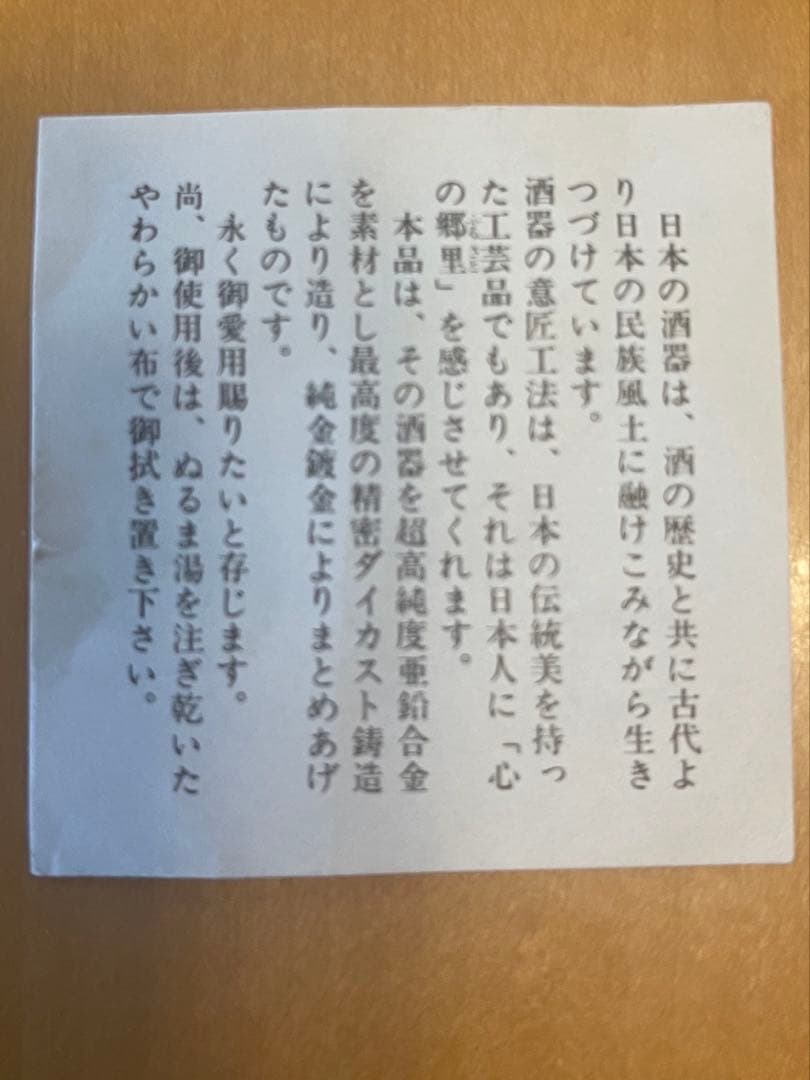 日本の酒器は、酒の歴史と共に古代よ
り日本の民族風土に融けこみながら生き
つづけています。
酒器の意匠工法は、日本の伝統美を持っ
た工芸品でもあり、それは日本人に「心
の郷里」を感じさせてくれます。
本品は、その酒器を超高純度亜鉛合金
を素材とし最高度の精密ダイカスト鋳造
により造り、純金鍍金によりまとめあげ
たものです。
永く御愛用賜りたいと存じます。
尚、御使用後は、ぬるま湯を注ぎ乾いた
やわらかい布で御拭き置き下さい。